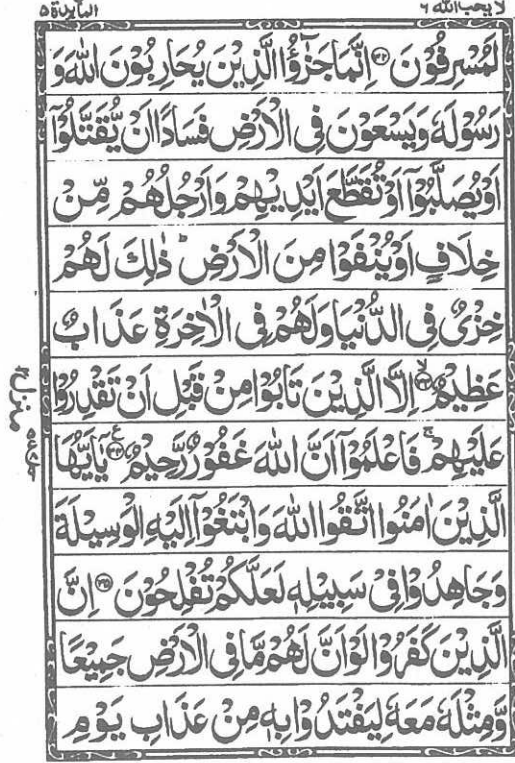 لا یحب الله ۶
المآىِٕدة ۵
لَمُسْرِفُوْنَ ۝۳۲ اِنَّمَا جَزٰٓؤُا الَّذِيْنَ يُحَارِبُوْنَ اللّٰهَ وَ
رَسُوْلَهٗ وَيَسْعَوْنَ فِى الْاَرْضِ فَسَادًا اَنْ يُّقَتَّلُوْٓا
اَوْ يُصَلَّبُوْٓا اَوْ تُقَطَّعَ اَيْدِيْهِمْ وَاَرْجُلُهُمْ مِّنْ
خِلَافٍ اَوْ يُنْفَوْا مِنَ الْاَرْضِ ؕ ذٰلِكَ لَهُمْ
خِزْىٌ فِى الدُّنْيَا وَلَهُمْ فِى الْاٰخِرَةِ عَذَابٌ
عَظِيْمٌ ۝۳۳ لا اِلَّا الَّذِيْنَ تَابُوْا مِنْ قَبْلِ اَنْ تَقْدِرُوْا
عَلَيْهِمْ ۚ فَاعْلَمُوْٓا اَنَّ اللّٰهَ غَفُوْرٌ رَّحِيْمٌ ۝۳۴ ع يٰٓاَيُّهَا
الَّذِيْنَ اٰمَنُوا اتَّقُوا اللّٰهَ وَابْتَغُوْٓا اِلَيْهِ الْوَسِيْلَةَ
وَجَاهِدُوْا فِىْ سَبِيْلِهٖ لَعَلَّكُمْ تُفْلِحُوْنَ ۝۳۵ اِنَّ
الَّذِيْنَ كَفَرُوْا لَوْ اَنَّ لَهُمْ مَّا فِى الْاَرْضِ جَمِيْعًا
وَّمِثْلَهٗ مَعَهٗ لِيَفْتَدُوْا بِهٖ مِنْ عَذَابِ يَوْمِ
منزل ۲